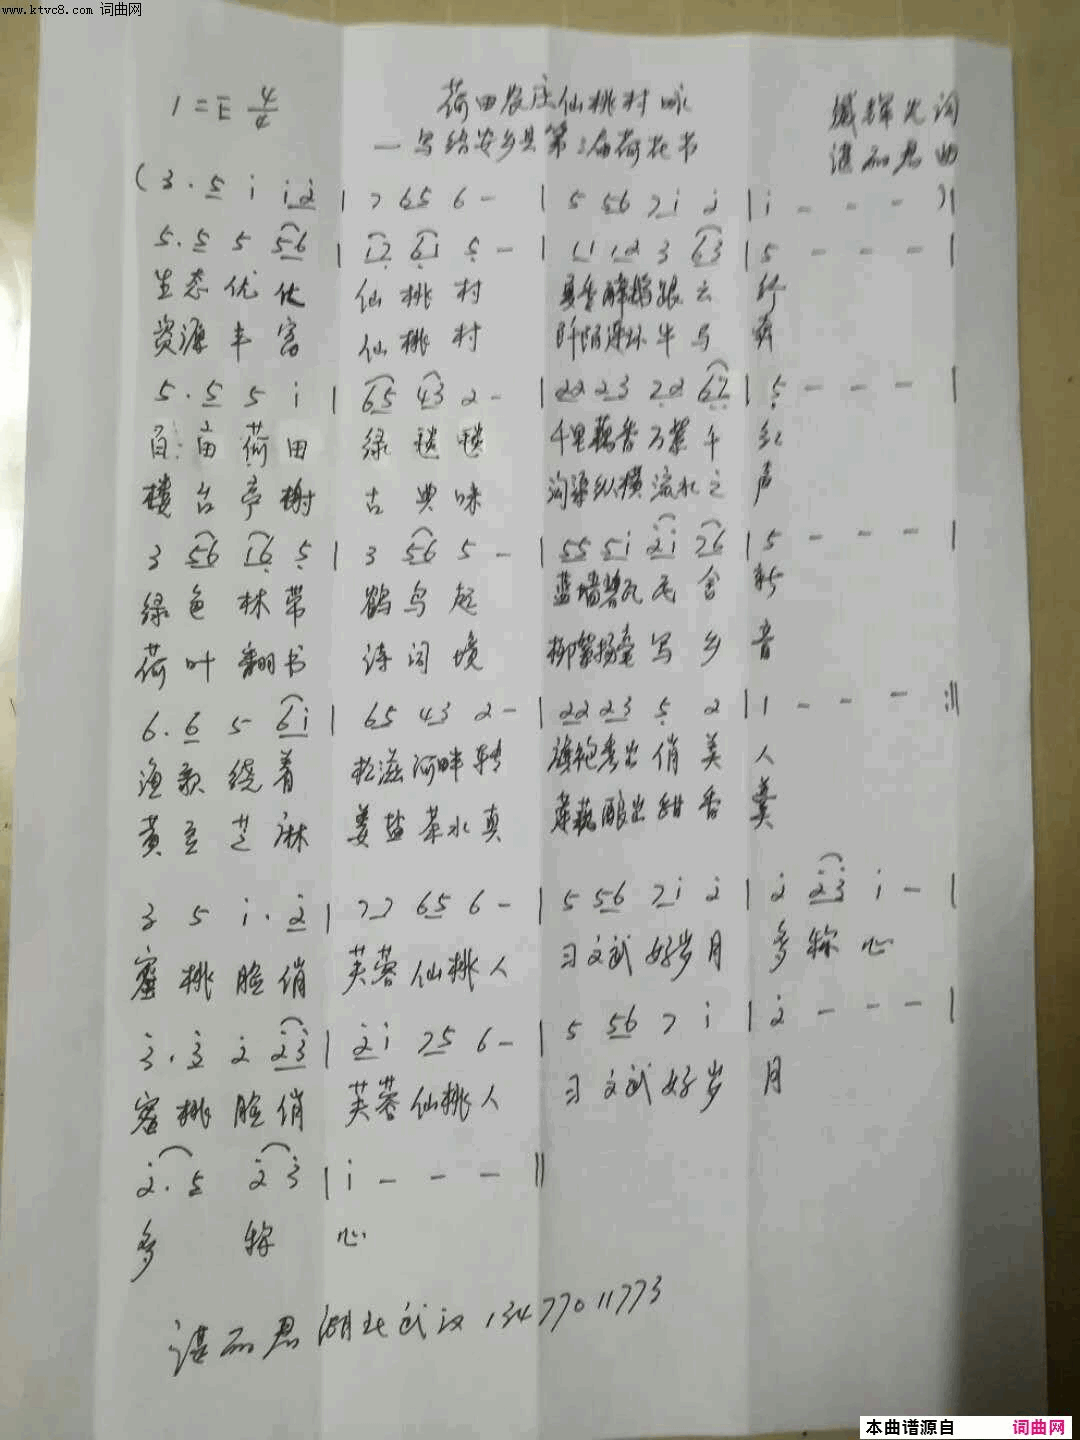 www.ktvc8.com 词曲网
1=E 4/4 荷田农庄仙桃村咏 辉光词
—写给安乡县第三届荷花节 谌丽君曲
(3·5 i i2 | 7 65 6 - | 5 56 7i 2 | i - - - )|
5·5 5 56 | 12 61 5 - | 11 12 3 63 | 5 - - - |
生态优化 仙桃村 夏香醉 云
资源丰富 仙桃村 阡陌 牛马
5·5 5 i | 65 43 2 - | 22 23 22 62 | 5 - - - |
百亩荷田 绿毯毯 千里藕香万 千红
楼台亭榭 古典味 沟渠纵横流水之声
3 56 16 5 | 3 56 5 - | 55 5i 2i 76 | 5 - - - |
绿色林带 鹤鸟起 蓝墙碧瓦民舍新
荷叶翻书 诗词境 柳絮扬 写乡音
6·6 5 6i | 65 43 2 - | 22 23 5 2 | 1 - - - :||
渔歌绕着 松滋河畔转 旗袍秀出俏美人
黄豆芝麻 姜盐茶水真 莲藕酿出甜香羹
3 5 i·2 | 77 65 6 - | 5 56 7i 2 | 2 23 i - |
蜜桃脸俏 芙蓉仙桃人 习文武好岁月 多称心
3·3 2 23 | 2i 75 6 - | 5 56 7 i | 2 - - - |
蜜桃脸俏 芙蓉仙桃人 习文武好岁月
2·5 23 | i - - - ||
多称心
谌丽君湖北武汉13477011773
本曲谱源自 词曲网